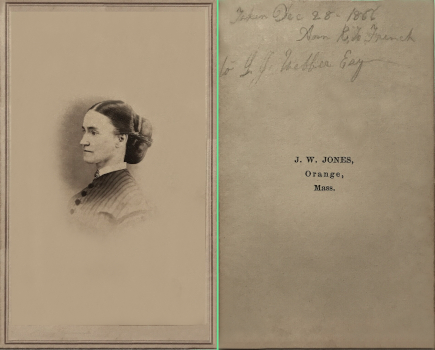 Taken Dec 28 - 1866
Ann Rito French
to G. J. Webber Esq
J. W. JONES,
Orange,
Mass.